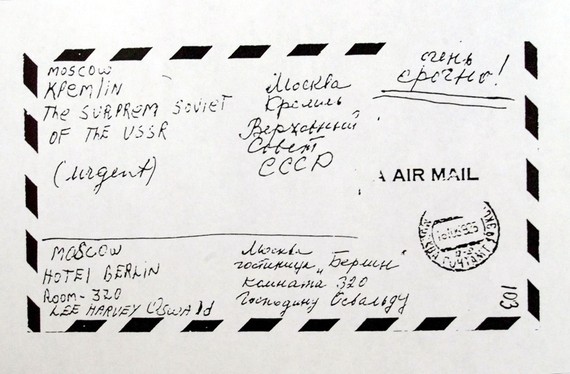 MOSCOW
KREMLIN
The SURPREM SOVIET
OF THE USSR
(urgent)
Москва
Кремль
Верховный
Совет
СССР
очень
срочно!
AIR MAIL
MOSCOW
HOTEl BERLIN
Room - 320
LEE HARVEY OSWAld
Москва
гостиница „Берлин"
комната 320
Господину Освальду
103